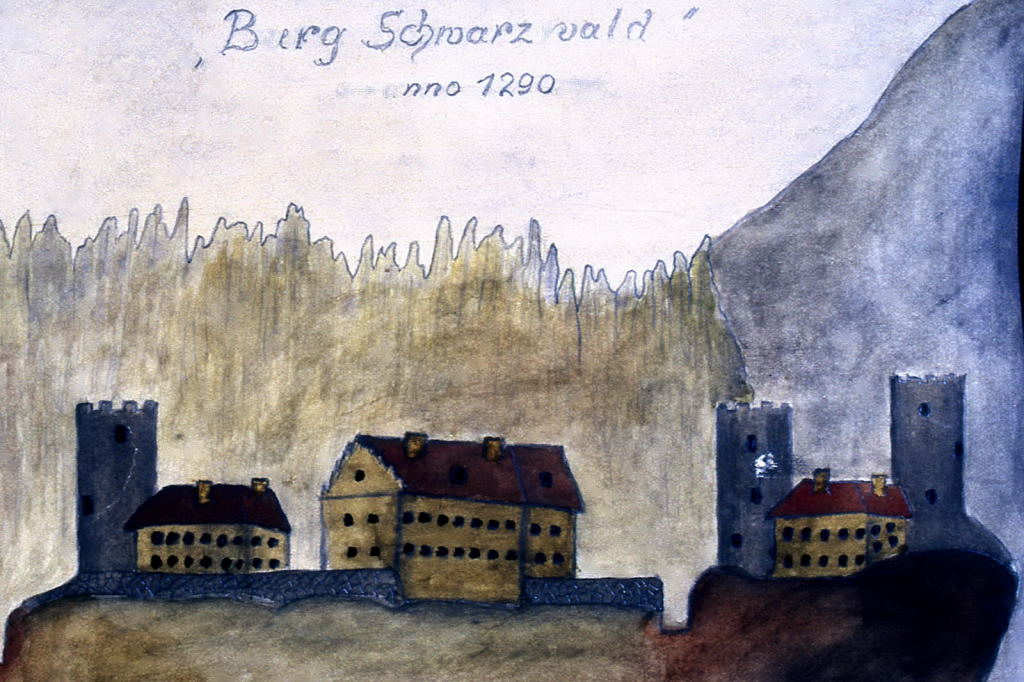 „Burg Schwarzwald"
anno 1290